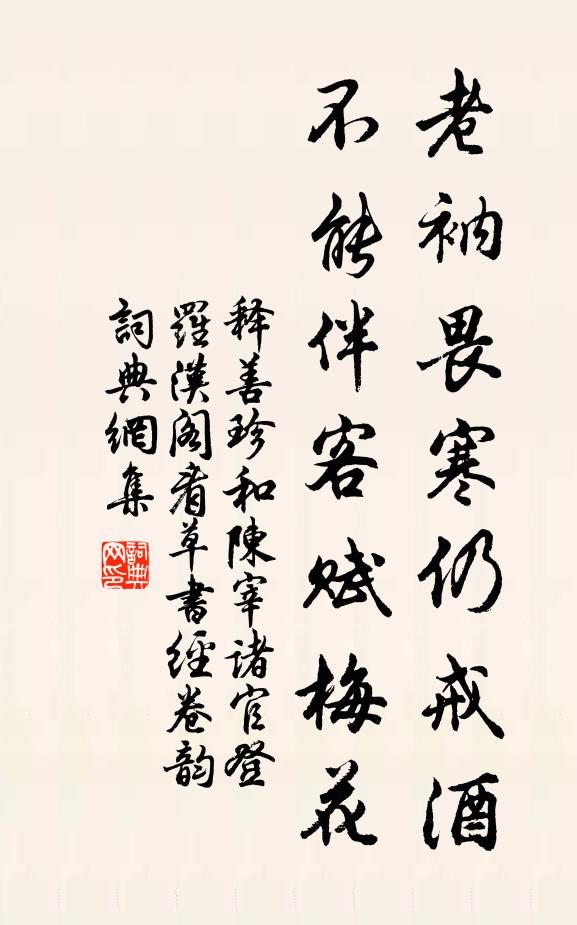 老衲畏寒仍戒酒
不能伴客赋梅花
释善珍和陳宰诸官登
羅漢阁看草書經卷韵
詞典網集
詞典网印